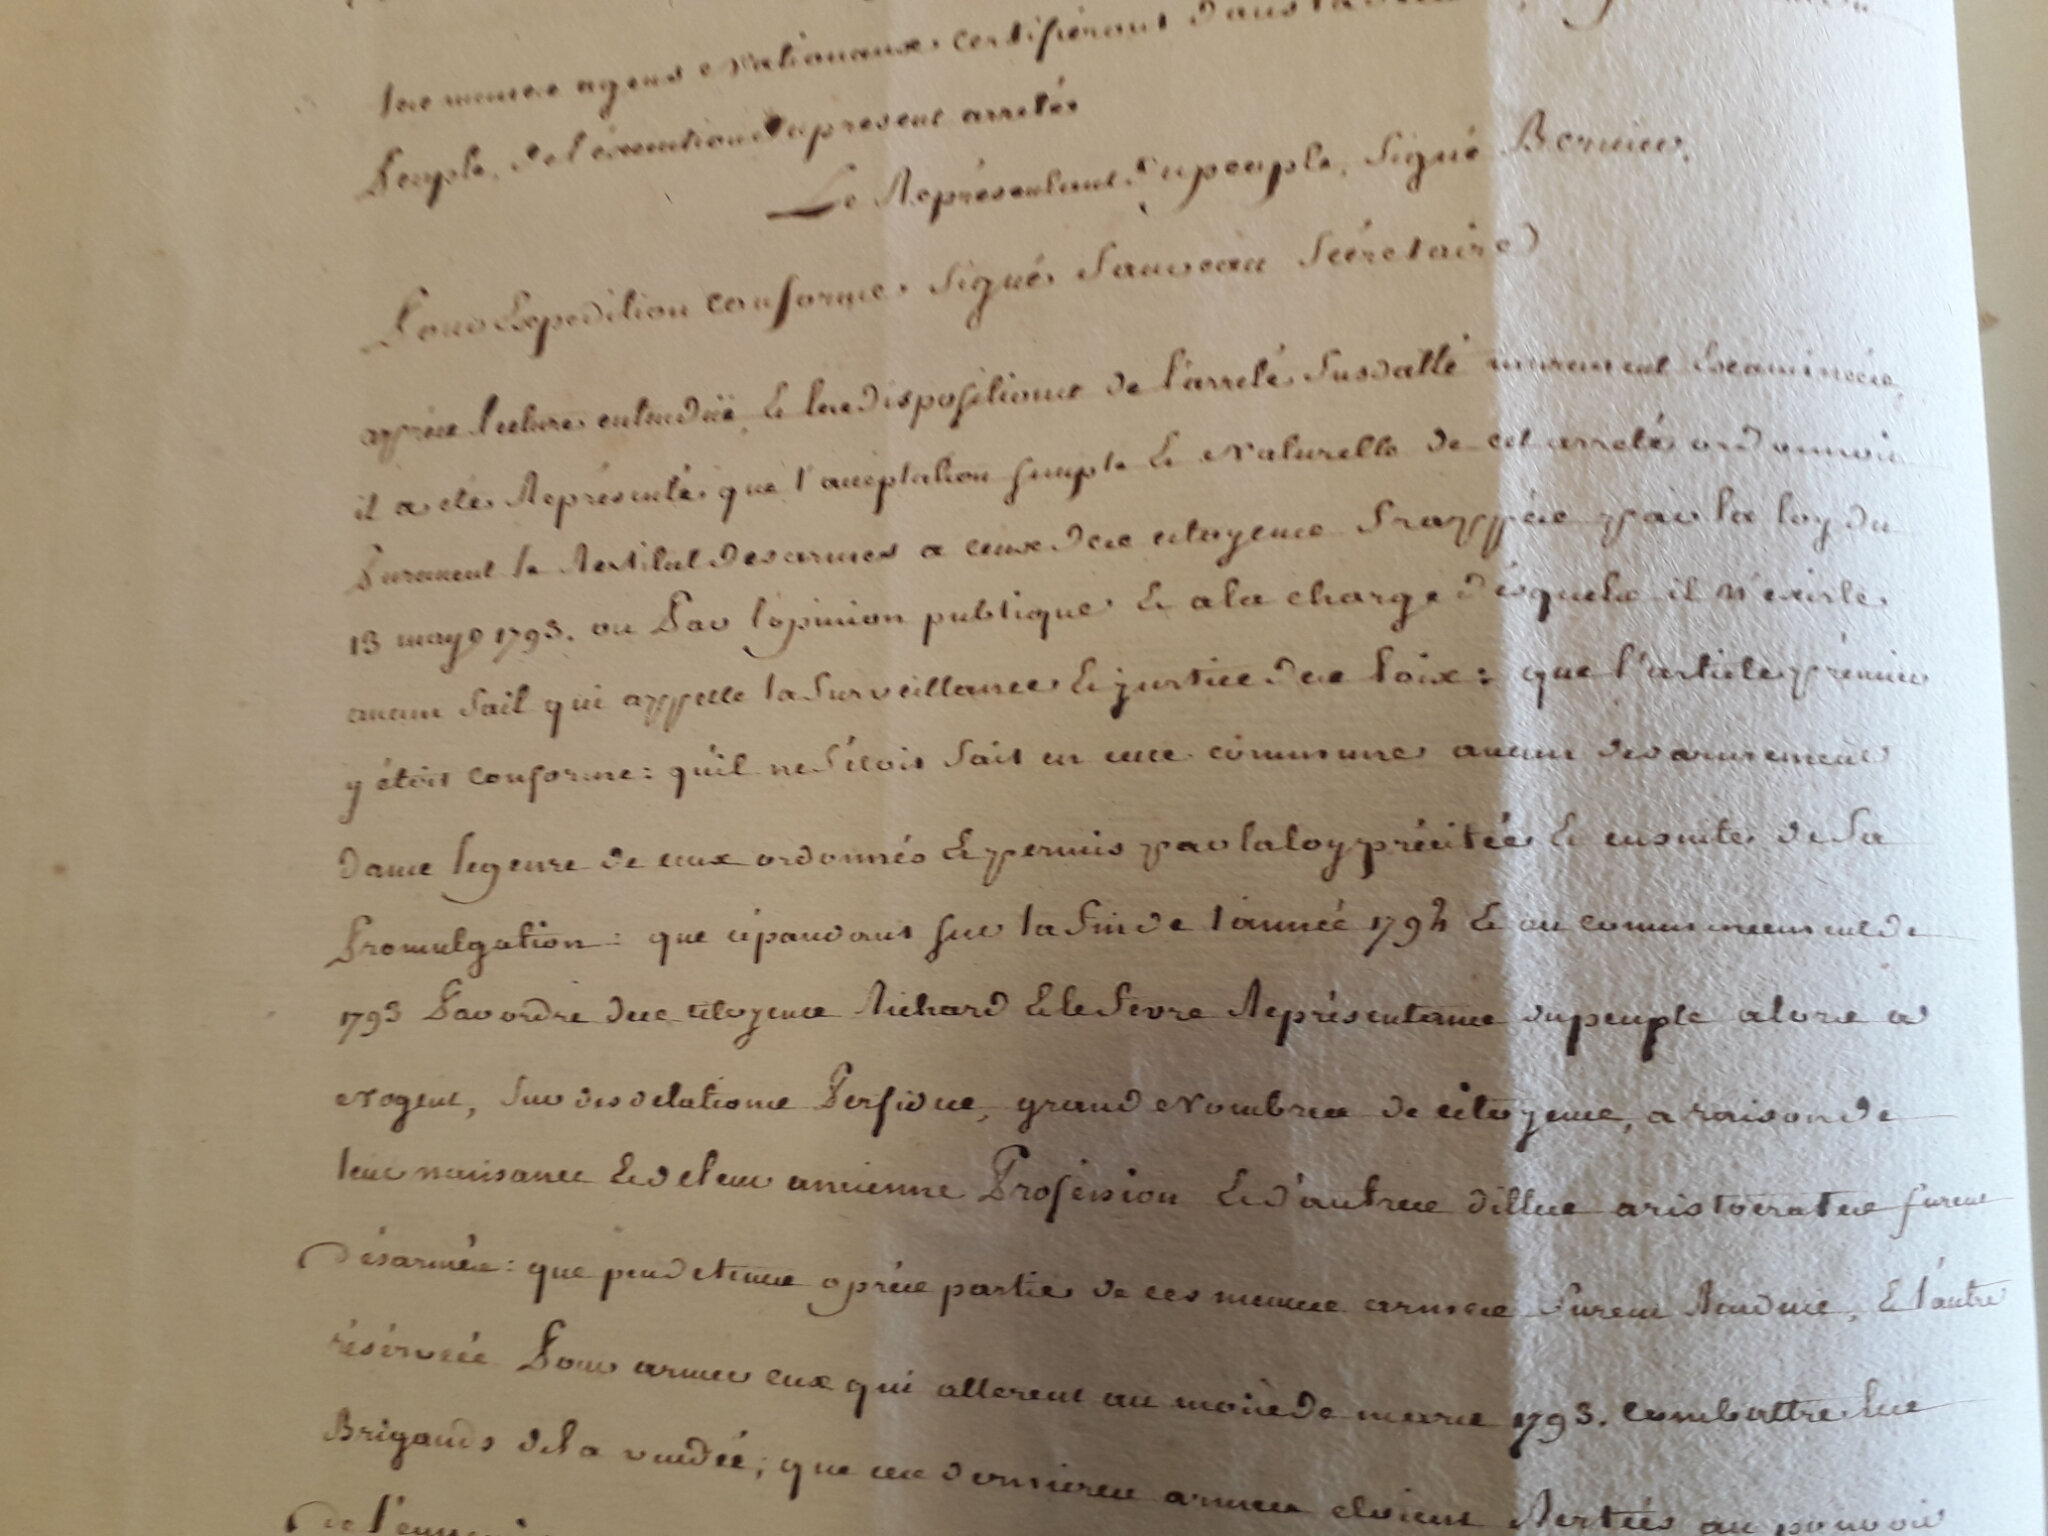 les mêmes agens nationaux certifieront dans la
Peuple, de l'éxecution du present arreté
Le Représentant du peuple, Signé Bernier.
Pour Expedition conforme, signé Sauveau Sécrétaire
après lecture entenduë, & les dispositions de l'arreté susdatté murement Examinées,
il a été Représenté que l'acceptation simple & naturelle de cet arreté ordonnoit
Purement la Restitut des armes a ceux des citoyens frappés par la loy du
13 may 1793. ou Par l'opinion publique & a la charge désquels il n'existe
aucun fait qui appelle la surveillance & justice des loix : que l'article prémier
y étoit conforme : qu'il ne s'étoit fait en cette commune aucun desarmement
dans le genre de ceux ordonnés & permis par la loy précitée & ensuite de sa
Promulgation : que cépandant sur la fin de l'année 1792 & au commencement de
1793 Par ordre des citoyens Richard & le fevre Représentans du peuple alors a
Nogent, sur des delations Perfides, grand Nombre de citoyens, a raison de
leur naisance & de leur ancienne Profession & d'autres dittes aristocrates furent
désarmés : que peu de tems après partie de ces mêmes armes furent Rendues, & l'autre
résérvéé Pour armer ceux qui allerent au mois de mars 1793. combattre les
Brigands de la vendéé ; que ces dernieres armes étoient Restées au pouvoir
de l'ennemi